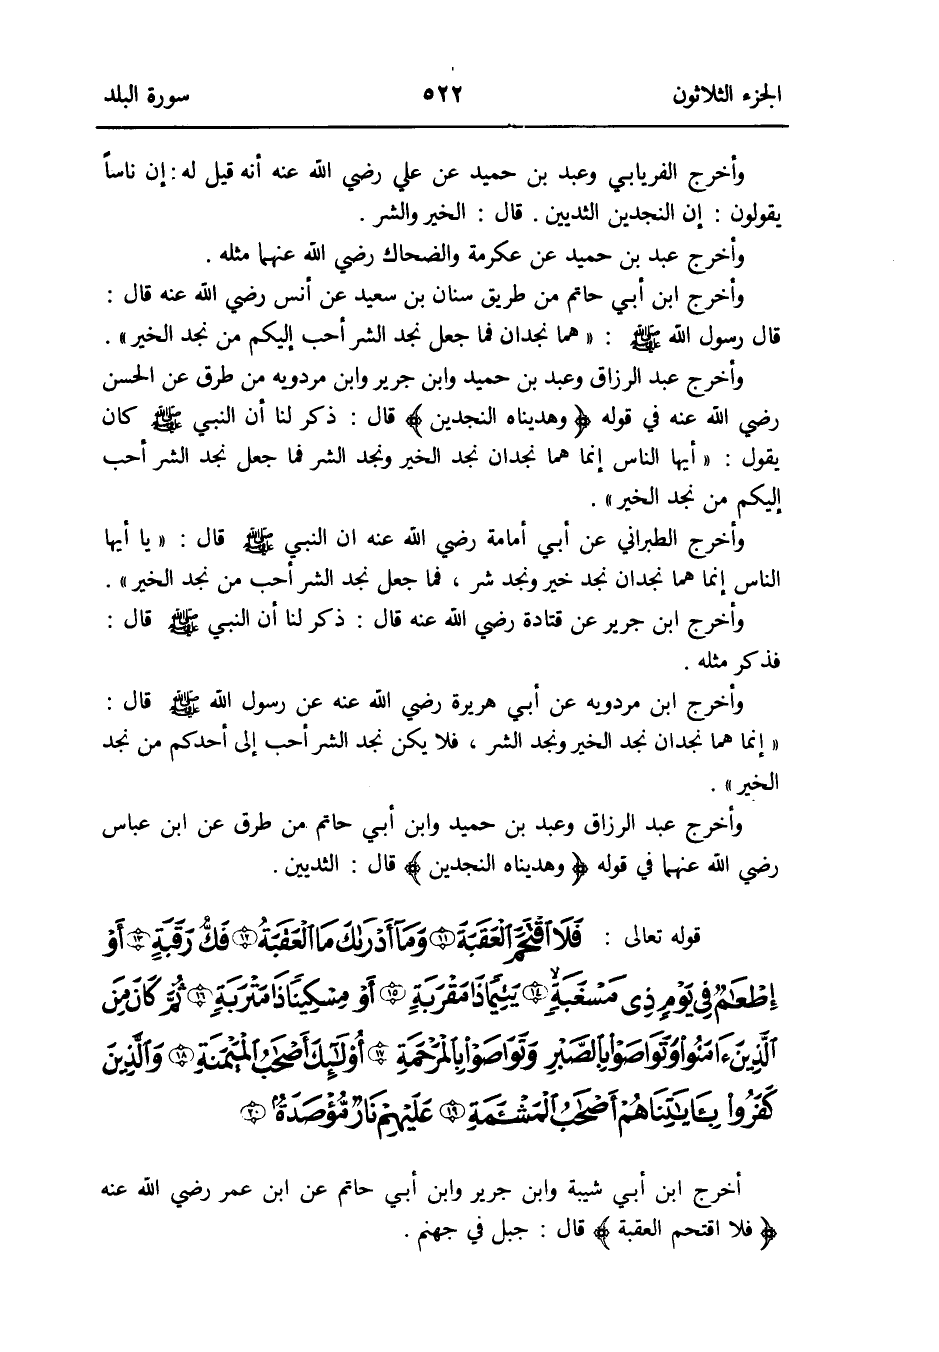 الجزء الثلاثون ٥٢٢ سورة البلد
وأخرج الفريابي وعبد بن حميد عن علي رضي الله عنه أنه قيل له : إن ناساً
يقولون : إن النجدين الثديين . قال : الخير والشر .
وأخرج عبد بن حميد عن عكرمة والضحاك رضي الله عنهما مثله .
وأخرج ابن أبي حاتم من طريق سنان بن سعيد عن أنس رضي الله عنه قال :
قال رسول الله ﷺ : « هما نجدان فما جعل نجد الشر أحب إليكم من نجد الخير » .
وأخرج عبد الرزاق وعبد بن حميد وابن جرير وابن مردويه من طرق عن الحسن
رضي الله عنه في قوله ﴿ وهديناه النجدين ﴾ قال : ذكر لنا أن النبي ﷺ كان
يقول : « أيها الناس إنما هما نجدان نجد الخير ونجد الشر فما جعل نجد الشر أحب
إليكم من نجد الخير » .
وأخرج الطبراني عن أبي أمامة رضي الله عنه ان النبي ﷺ قال : « يا أيها
الناس إنما هما نجدان نجد خير ونجد شر ، فما جعل نجد الشر أحب من نجد الخير » .
وأخرج ابن جرير عن قتادة رضي الله عنه قال : ذكر لنا أن النبي ﷺ قال :
فذكر مثله .
وأخرج ابن مردويه عن أبي هريرة رضي الله عنه عن رسول الله ﷺ قال :
« إنما هما نجدان نجد الخير ونجد الشر ، فلا يكن نجد الشر أحب إلى أحدكم من نجد
الخير » .
وأخرج عبد الرزاق وعبد بن حميد وابن أبي حاتم من طرق عن ابن عباس
رضي الله عنهما في قوله ﴿ وهديناه النجدين ﴾ قال : الثديين .
قوله تعالى : فَلَا ٱقۡتَحَمَ ٱلۡعَقَبَةَ ١١ وَمَآ أَدۡرَىٰكَ مَا ٱلۡعَقَبَةُ ١٢ فَكُّ رَقَبَةٍ ١٣ أَوۡ
إِطۡعَٰمٞ فِي يَوۡمٖ ذِي مَسۡغَبَةٖ ١٤ يَتِيمٗا ذَا مَقۡرَبَةٍ ١٥ أَوۡ مِسۡكِينٗا ذَا مَتۡرَبَةٖ ١٦ ثُمَّ كَانَ مِنَ
ٱلَّذِينَ ءَامَنُواْ وَتَوَاصَوۡاْ بِٱلصَّبۡرِ وَتَوَاصَوۡاْ بِٱلۡمَرۡحَمَةِ ١٧ أُوْلَٰٓئِكَ أَصۡحَٰبُ ٱلۡمَيۡمَنَةِ ١٨ وَٱلَّذِينَ
كَفَرُواْ بِـَٔايَٰتِنَا هُمۡ أَصۡحَٰبُ ٱلۡمَشۡـَٔمَةِ ١٩ عَلَيۡهِمۡ نَارٞ مُّؤۡصَدَةُۢ ٢٠
أخرج ابن أبي شيبة وابن جرير وابن أبي حاتم عن ابن عمر رضي الله عنه
﴿ فلا اقتحم العقبة ﴾ قال : جبل في جهنم .